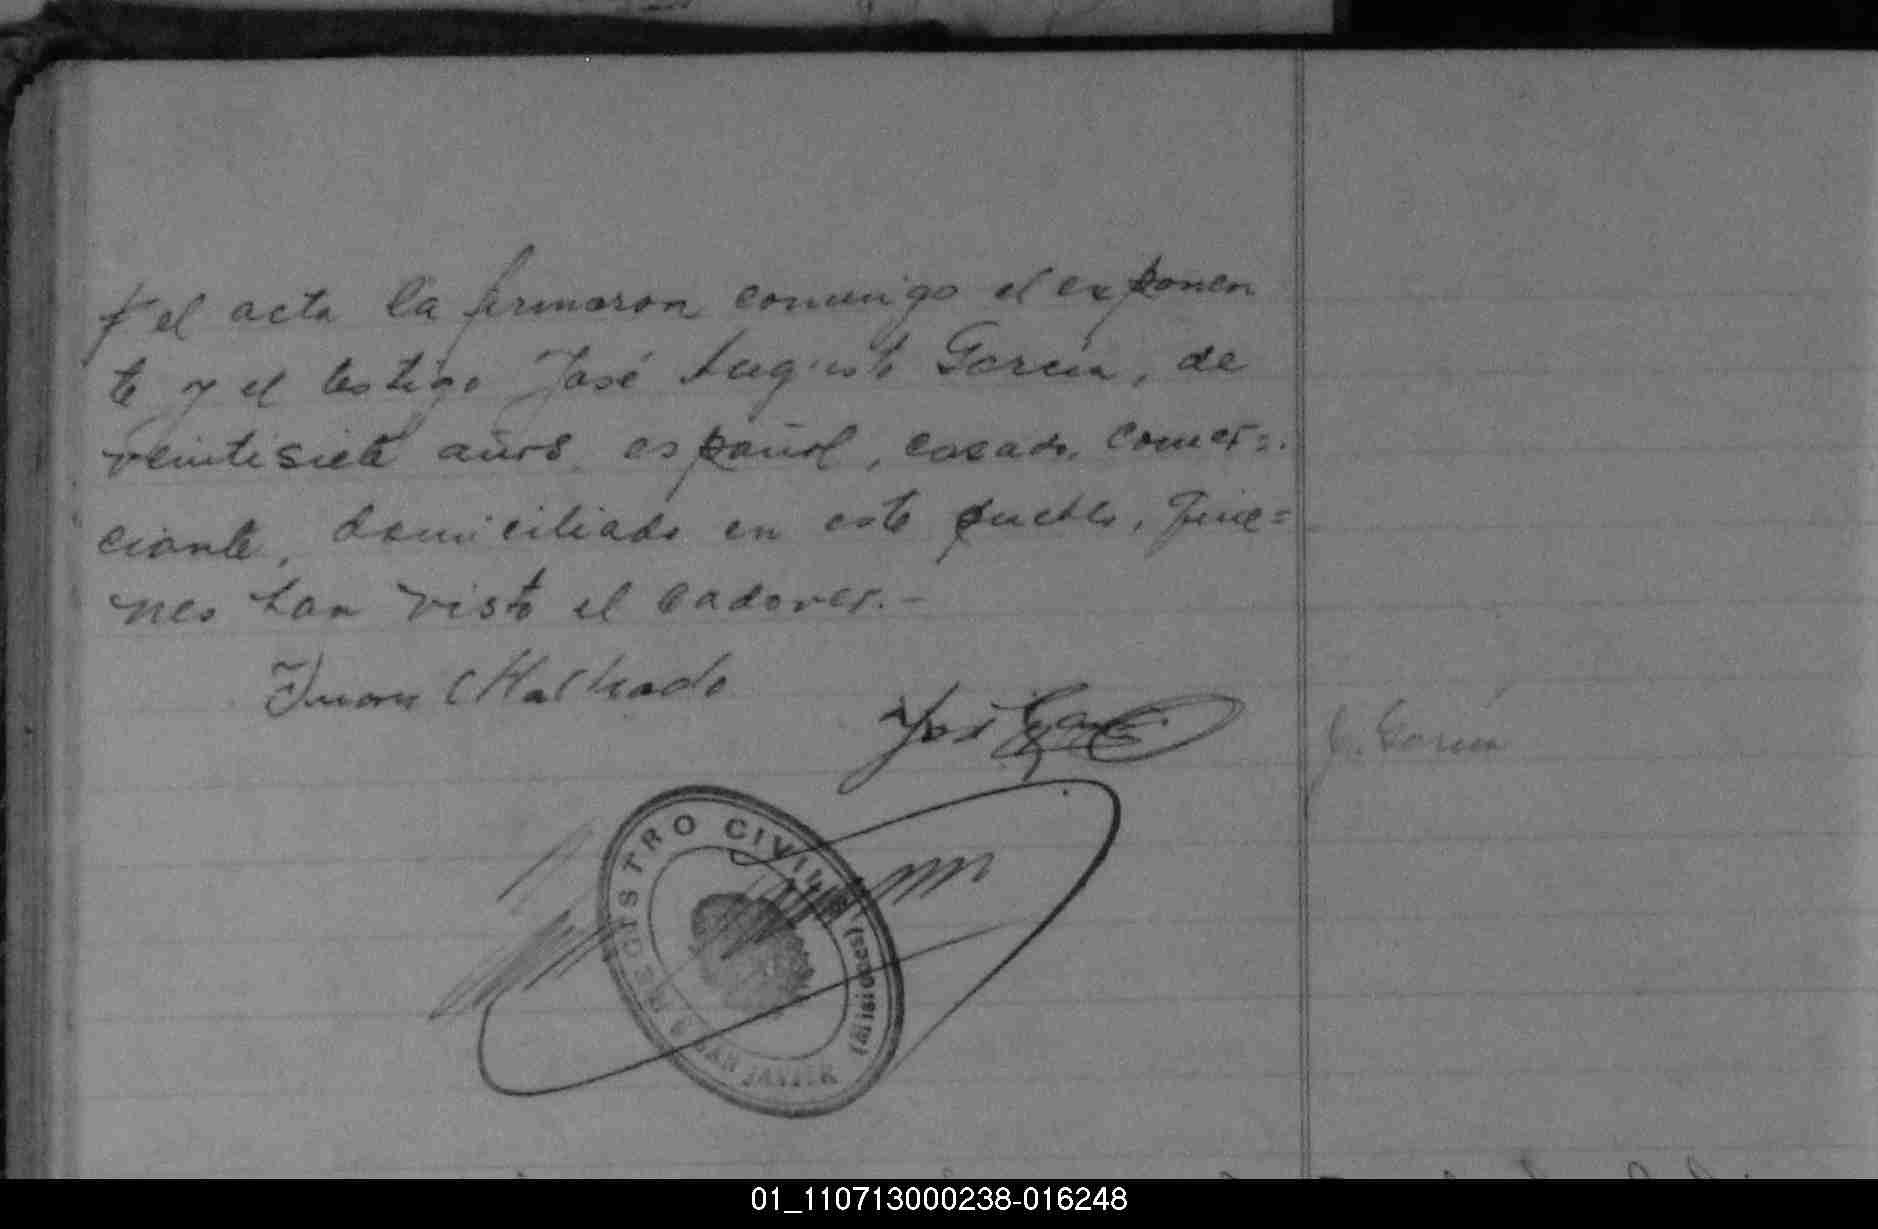 y el acta la firmaron conmigo el exponen
te y el testigo José Augusto García, de
veintisiete años, español, casado, comer=
ciante, domiciliado en este pueblo, quie=
nes han visto el cadaver.-
Juan Machado
José García
J. García
REGISTRO CIVIL
SAN JAVIER
(Misiones)
01_110713000238-016248